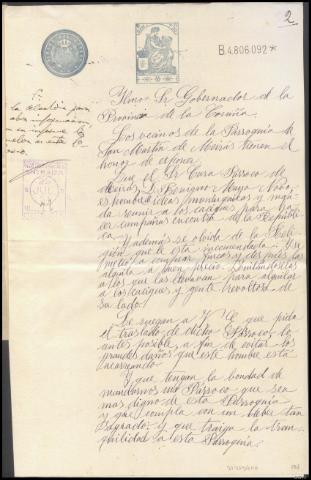 2
B.4.806.092*
Ylmo Sr Gobernador de la
Provincia de la Coruña
Los vecinos de la Parroquia de
San Martin de Meirás tienen el
honor de esponer
Que el Sr Cura Párroco de
Meirás, D. Benigno
es hombre de ideas monarquicas y
reunir a los caciques para
campañas en contra de la Republi
ca.
Y además se olvida de la Reli
gion que le está recomendada. Y se
metio a comprar fincas y despues las
alquila a buen precio. Quitandoselas
a los que las llevaban para alquilar
a los caciques y gente revoltosa de
su lado.
Le ruegan a V. E que pida
el traslado de dicho Párroco lo
antes posible, a fin de evitar los
grandes daños que este hombre está
acarreando
Y que tengan la bondad de
mandarnos un Párroco que sea
mas digno de esta Parroquia
y que cumpla con un deber tan
Sagrado. Y que traiga la tran
quilidad a esta Parroquia.